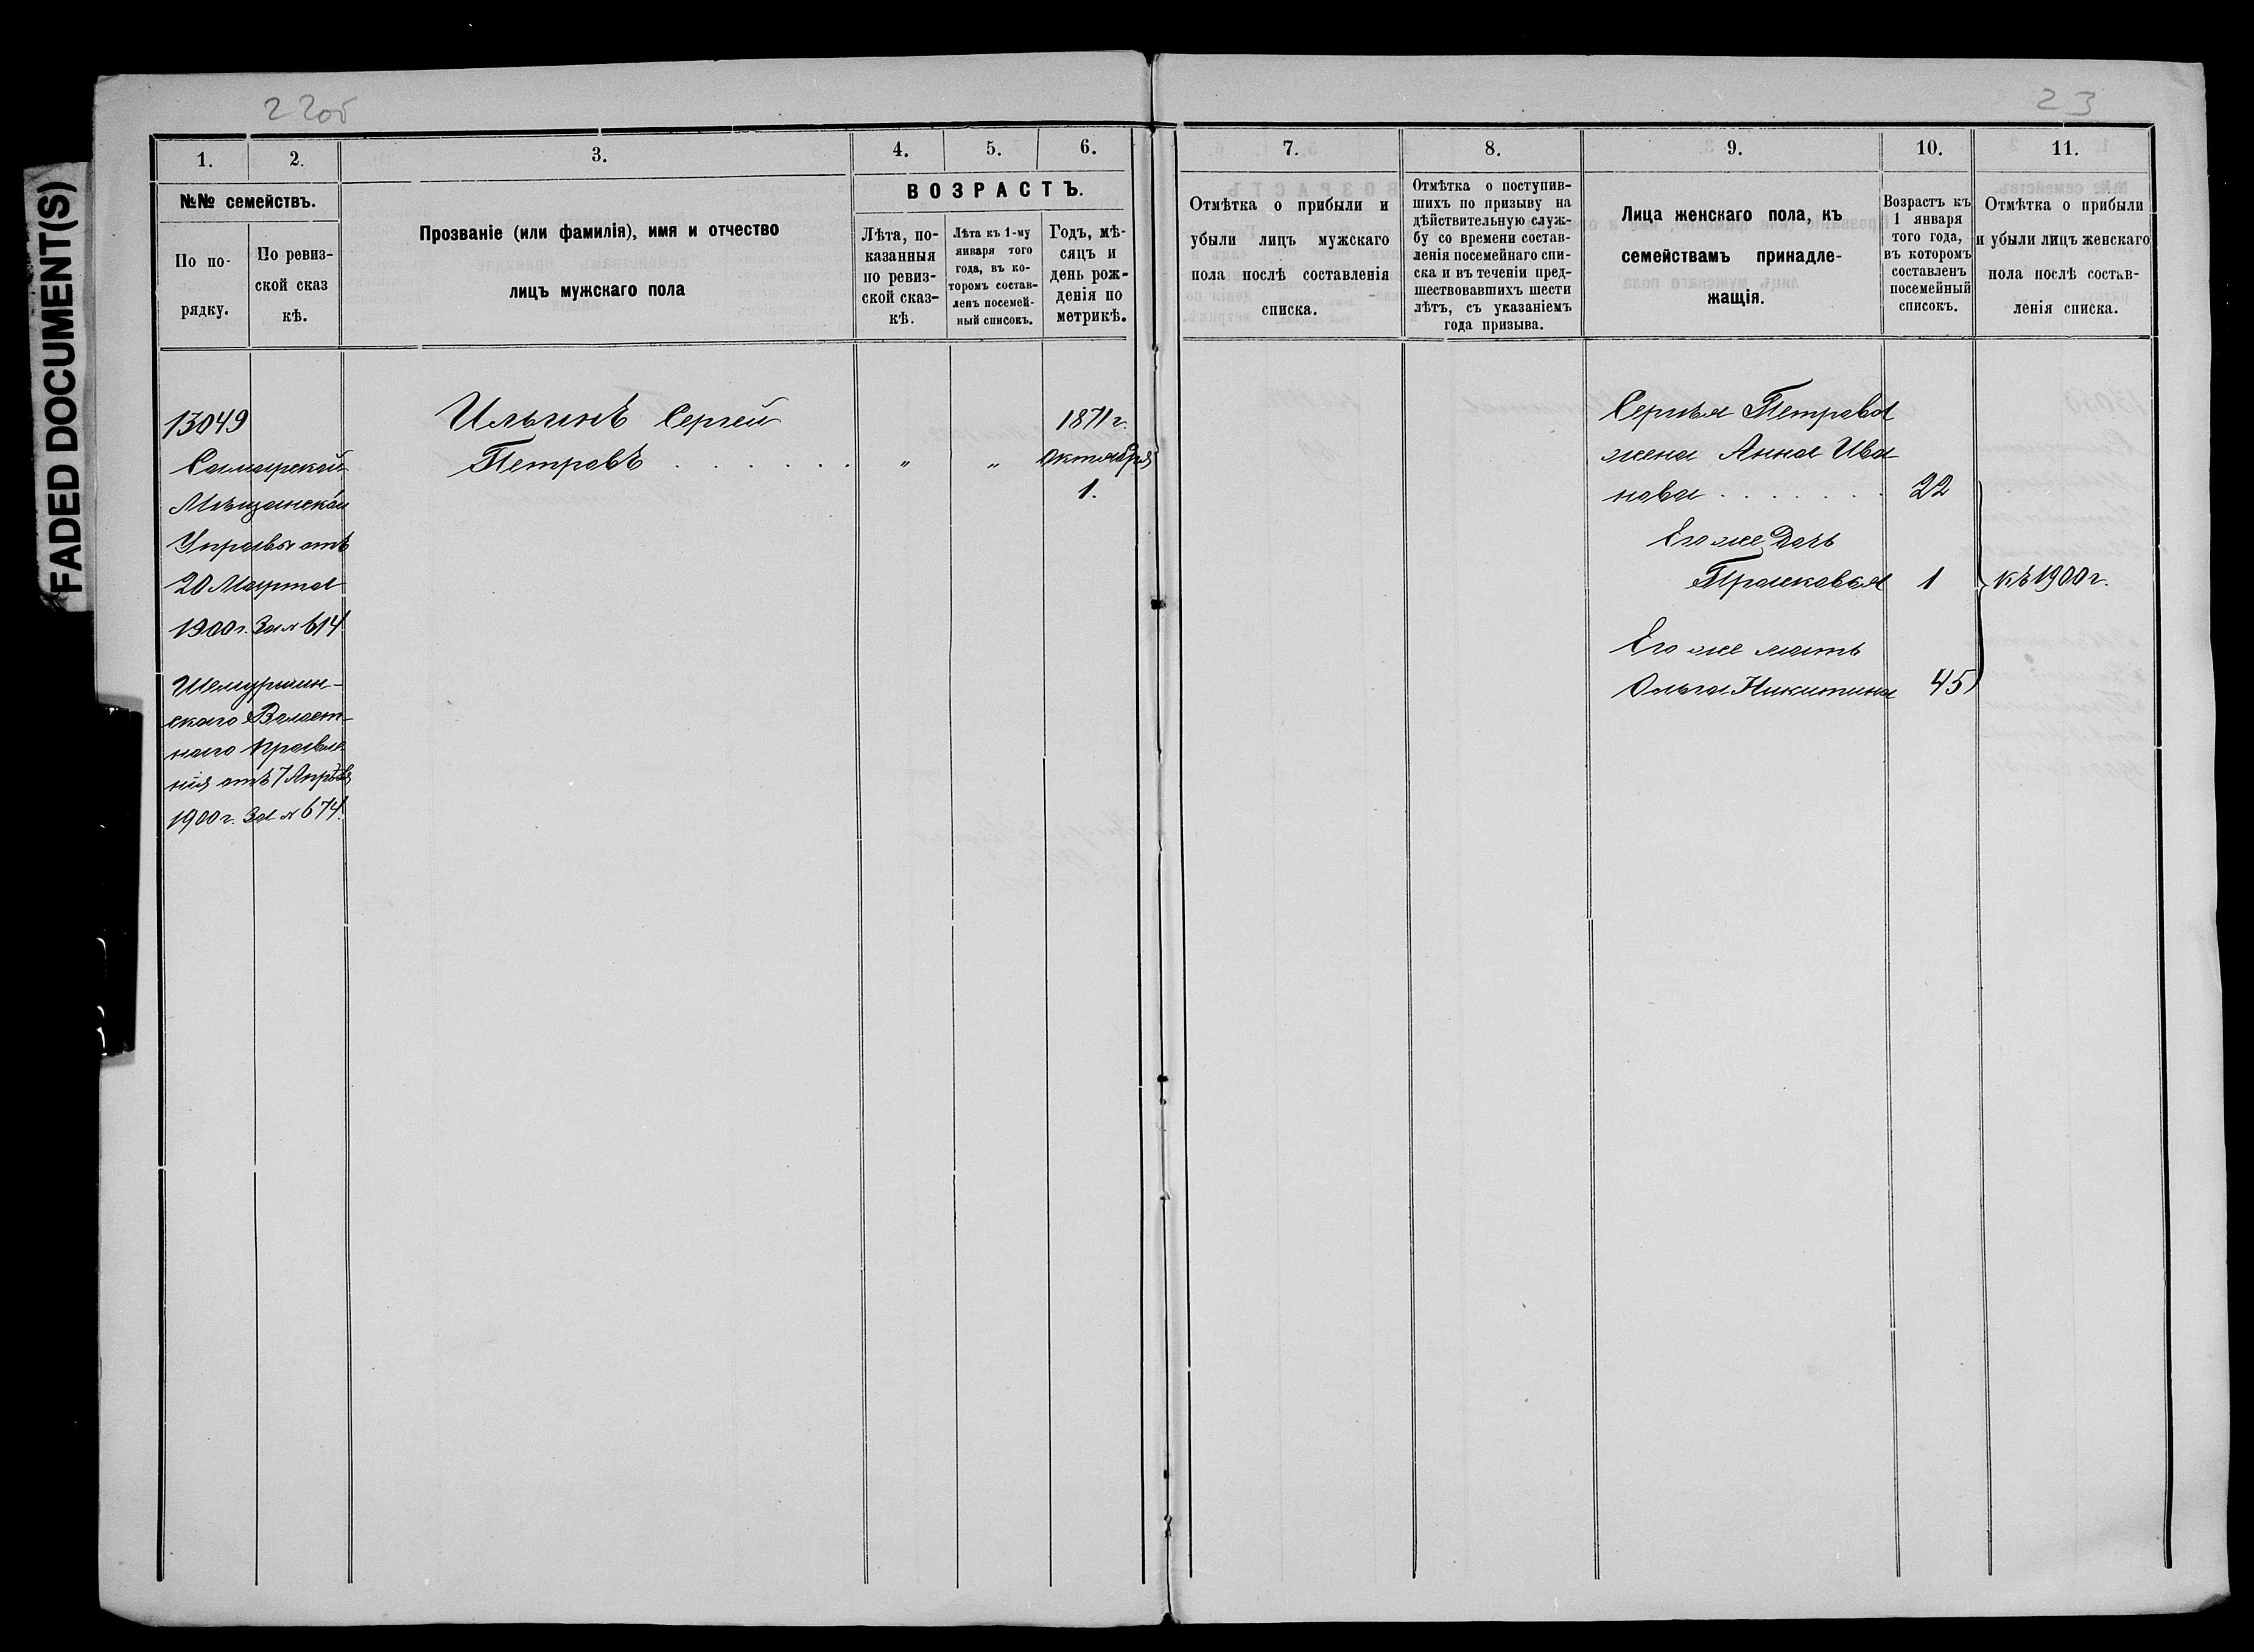 FADED DOCUMENT(S)
22об
23
1.
2.
3.
4.
5.
6.
7.
8.
9.
10.
11.
№№ семействъ.
По по-
рядку.
По ревиз-
ской сказ
кѣ.
Прозваніе (или фамилія), имя и отчество
лицъ мужскаго пола
ВОЗРАСТЪ.
Лѣта, по-
казанныя
по ревиз-
ской сказ-
кѣ.
Лѣта къ 1-му
января того
года, въ ко-
торомъ состав-
ленъ посемей-
ный списокъ.
Годъ, мѣ-
сяцъ и
день рож-
денія по
метрикѣ.
Отмѣтка о прибыли и
убыли лицъ мужскаго
пола послѣ составленія
списка.
Отмѣтка о поступив-
шихъ по призыву на
дѣйствительную служ-
бу со времени состав-
ленія посемейнаго спи-
ска и въ теченіи пред-
шествовавшихъ шести
лѣтъ, съ указаніемъ
года призыва.
Лица женскаго пола, къ
семействамъ принадле-
жащія.
Возрастъ къ
1 января
того года,
въ которомъ
составленъ
посемейный
списокъ.
Отмѣтка о прибыли
и убыли лицъ женскаго
пола послѣ состав-
ленія списка.
13049
Самарской
Мѣщанской
Управы отъ
20 Марта
1900г. За № 614
Шемуршин-
скаго Волост-
наго Правле-
нія отъ 7 Апрѣля
1900г. За № 674.
Ильинъ Сергей
Петровъ . . . . . . . " "
1871 г.
Октября
1.
Сергѣя Петрова
жена Анна Ива
нова . . . . . . . 22
Его же дочь
Прасковья 1 къ 1900 г.
Его же мать
Ольга Никитина 45